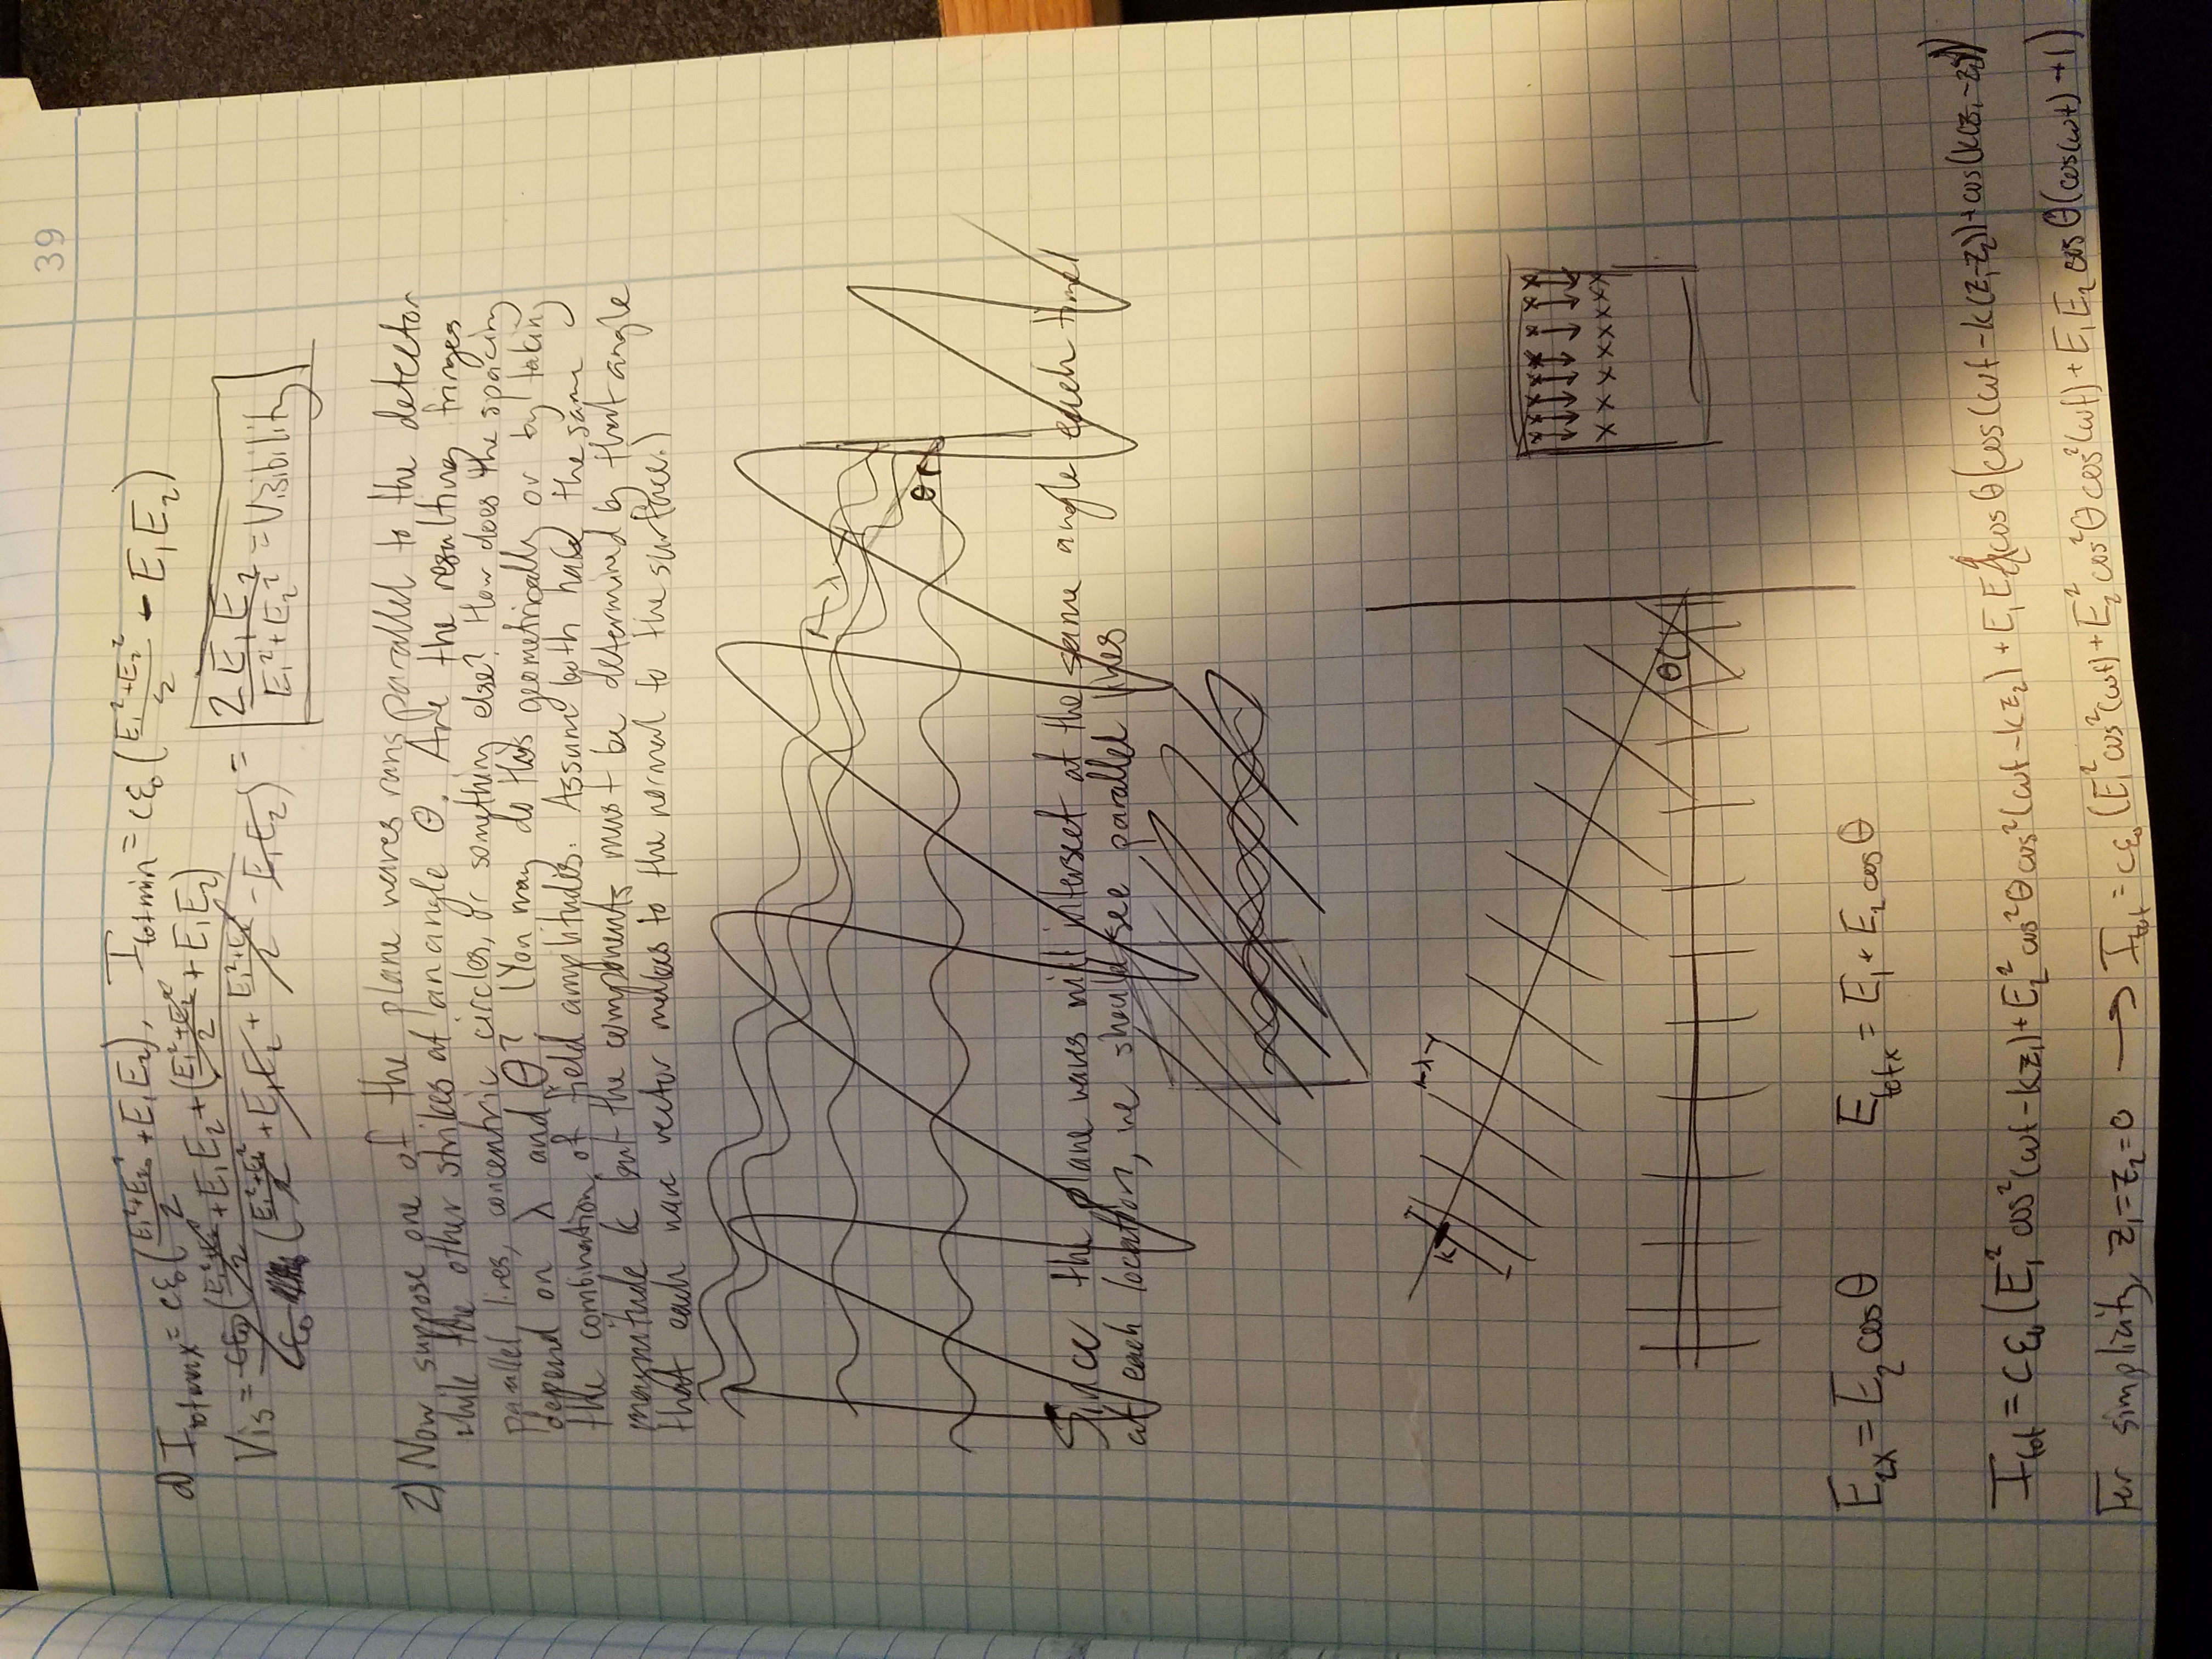 39
d) I_totmax = cε₀((E₁²+E₂²)/2 + E₁E₂), I_totmin = cε₀((E₁²+E₂²)/2 - E₁E₂)
Vis = cε₀((E₁²+E₂²)/2 + E₁E₂ + ((E₁²+E₂²)/2 + E₁E₂) / cε₀((E₁²+E₂²)/2 + E₁E₂ + (E₁²+E₂²)/2 - E₁E₂) = 2E₁E₂/(E₁²+E₂²) = Visibility
2) Now suppose one of the plane waves runs parallel to the detector
while the other strikes at an angle θ. Are the resulting fringes
parallel lines, concentric circles, or something else? How does the spacing
depend on λ and θ? (You may do this geometrically or by taking
the combination of field amplitudes. Assume both have the same
magnitude k but the components must be determined by that angle
that each wave vector makes to the normal to the surface.)
λ
θ
Since the plane waves will intersect at the same angle each time
at each location, we should see parallel lines
k
λ
θ
x x x x x x x x
x x x x x x x x
E₂ₓ = E₂ cosθ E_totx = E₁ + E₂ cosθ
I_tot = cε₀(E₁² cos²(ωt-kz₁) + E₂² cos²θ cos²(ωt-kz₂) + E₁E₂ cosθ(cos(ωt-k(z₁-z₂)) + cos(k(z₁-z₂)))
For simplicity, z₁=z₂=0 → I_tot = cε₀(E₁² cos²(ωt) + E₂² cos²θ cos²(ωt) + E₁E₂ cosθ(cos(ωt) + 1)